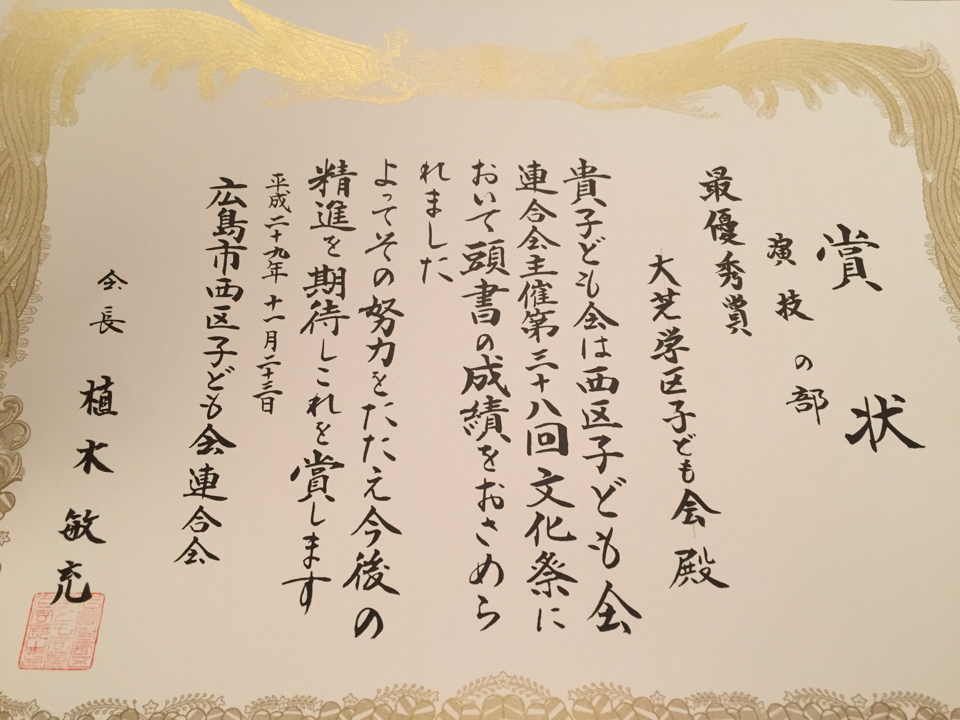 賞状
演技の部
最優秀賞
大芝学区子ども会 殿
貴子ども会は西区子ども会
連合会主催第三十八回文化祭に
おいて頭書の成績をおさめら
れました
よってその努力をたたえ今後の
精進を期待しこれを賞します
平成二十九年十一月二十三日
広島市西区子ども会連合会
会長 植木敏充